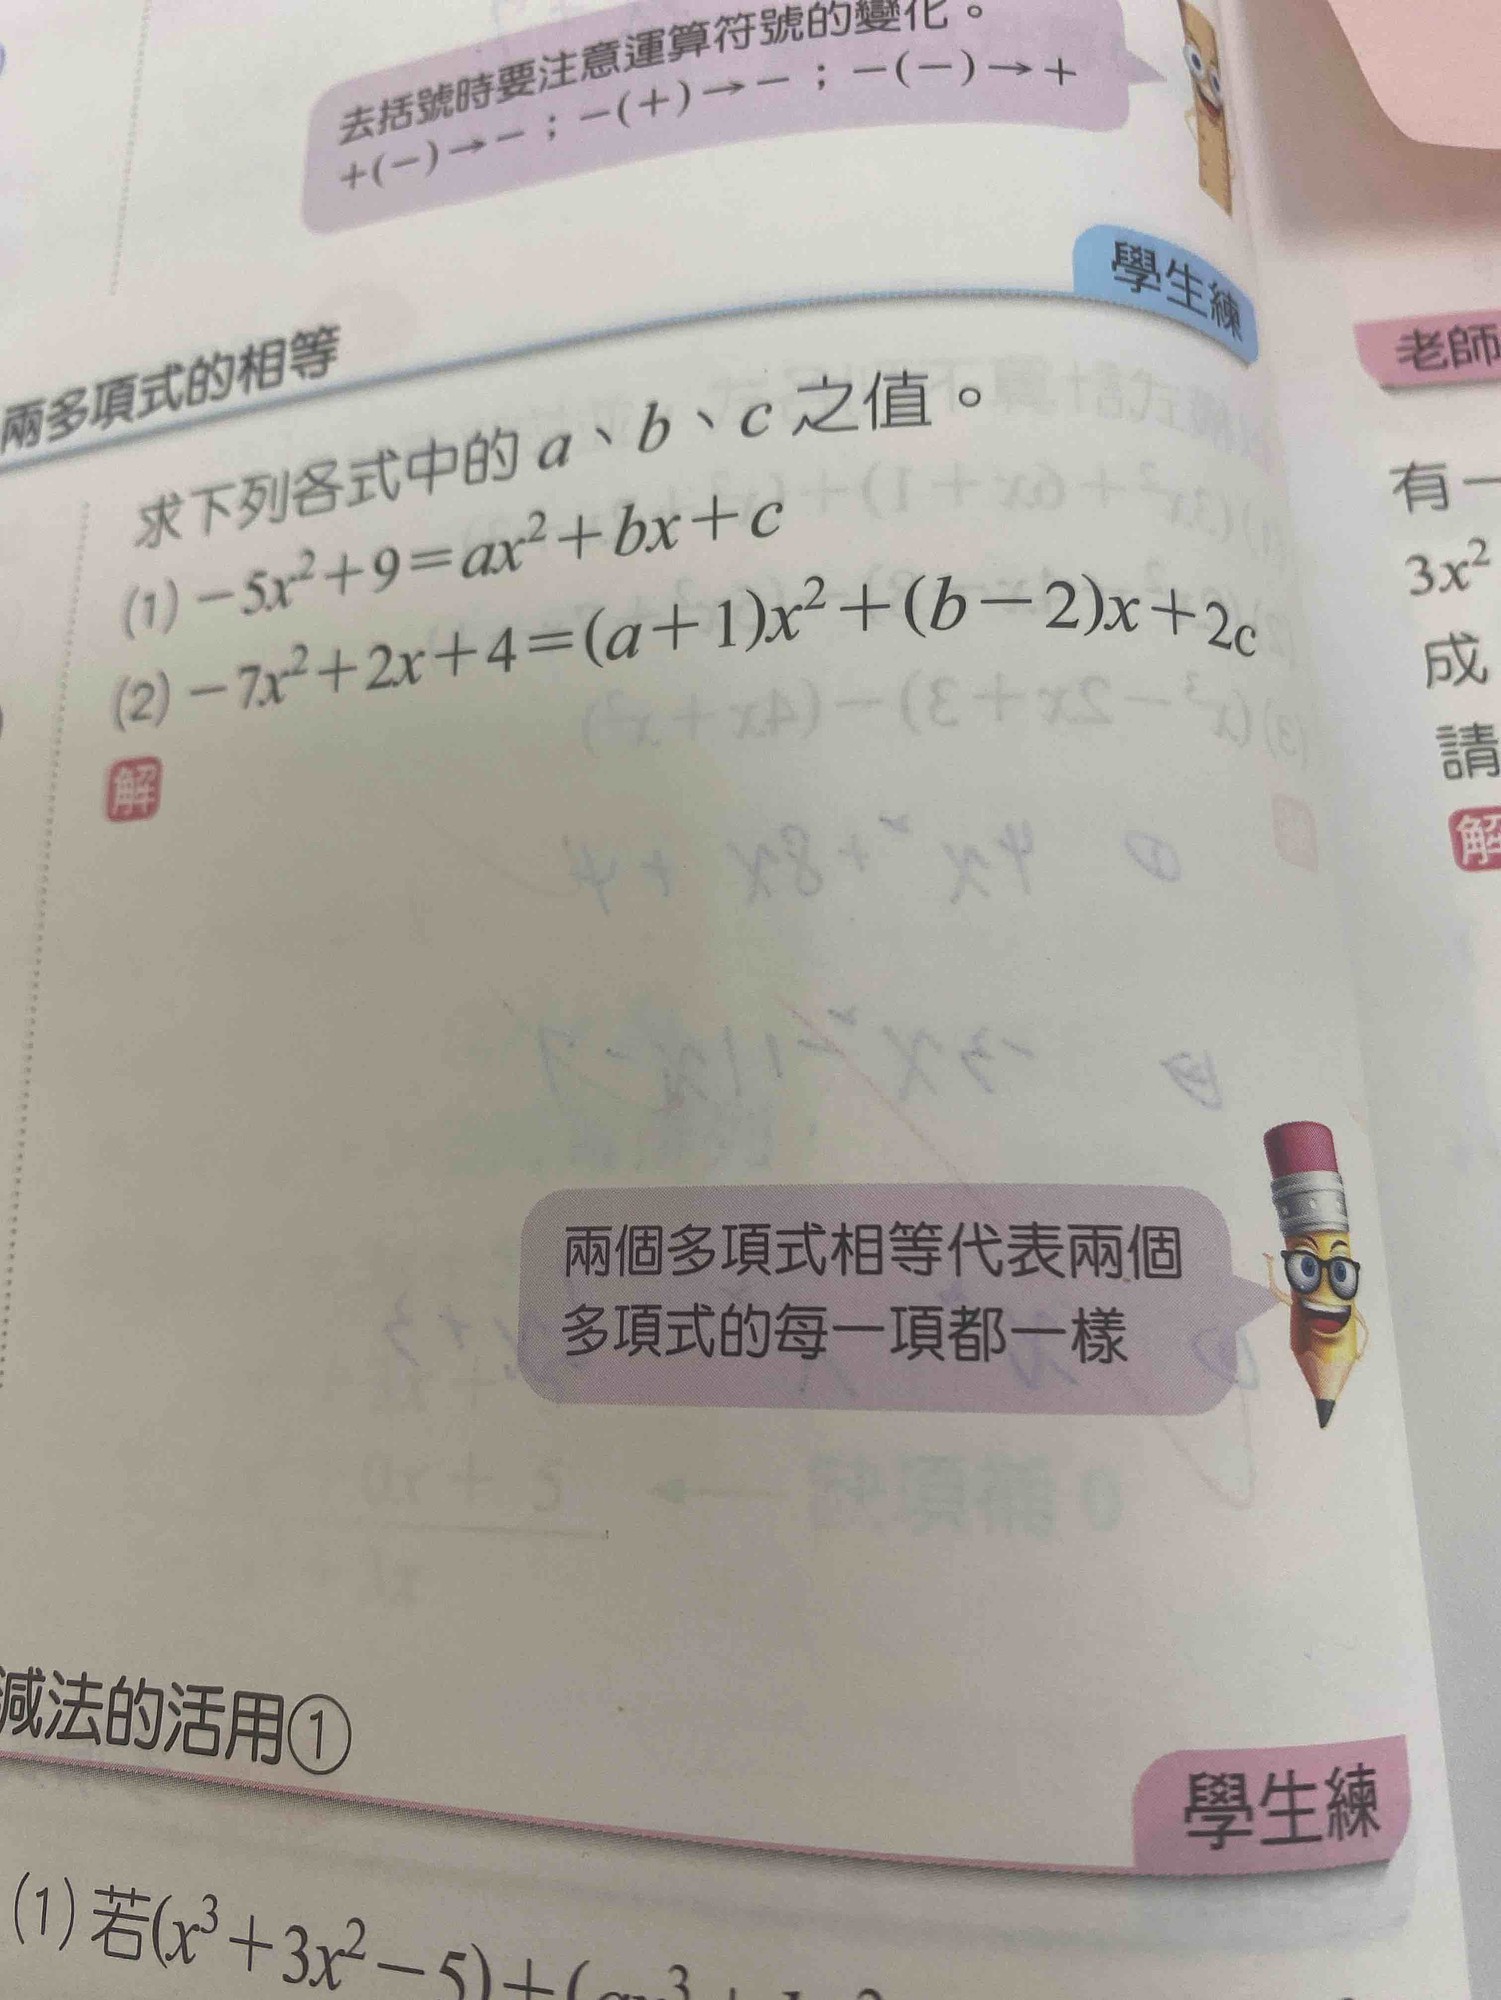 去括號時要注意運算符號的變化。
+(−)→−；−(+)→−；−(−)→+
學生練
兩多項式的相等
求下列各式中的 a、b、c 之值。
(1) −5x²+9=ax²+bx+c
(2) −7x²+2x+4=(a+1)x²+(b−2)x+2c
解
兩個多項式相等代表兩個
多項式的每一項都一樣
減法的活用①
學生練
(1) 若(x³+3x²−5)+(
老師
有一
3x²
成
請
解